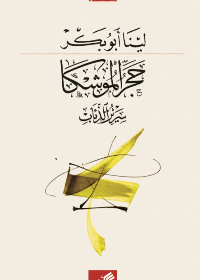 لينا أبو بكر
حجر الموشكا
سرير الذباب